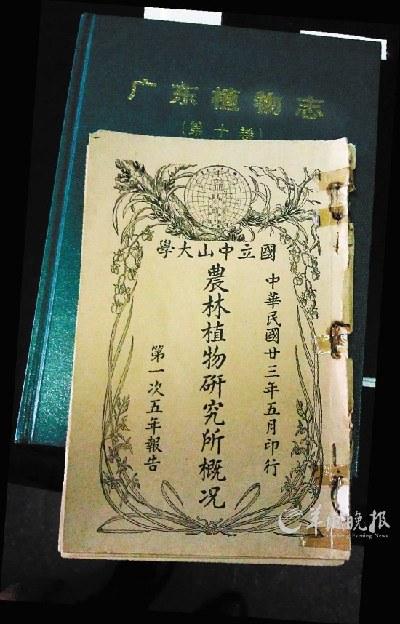 广东植物志
(第十卷)
國立中山大學
中華民國廿三年五月印行
農林植物研究所概况
第一次五年報告
羊城晚报